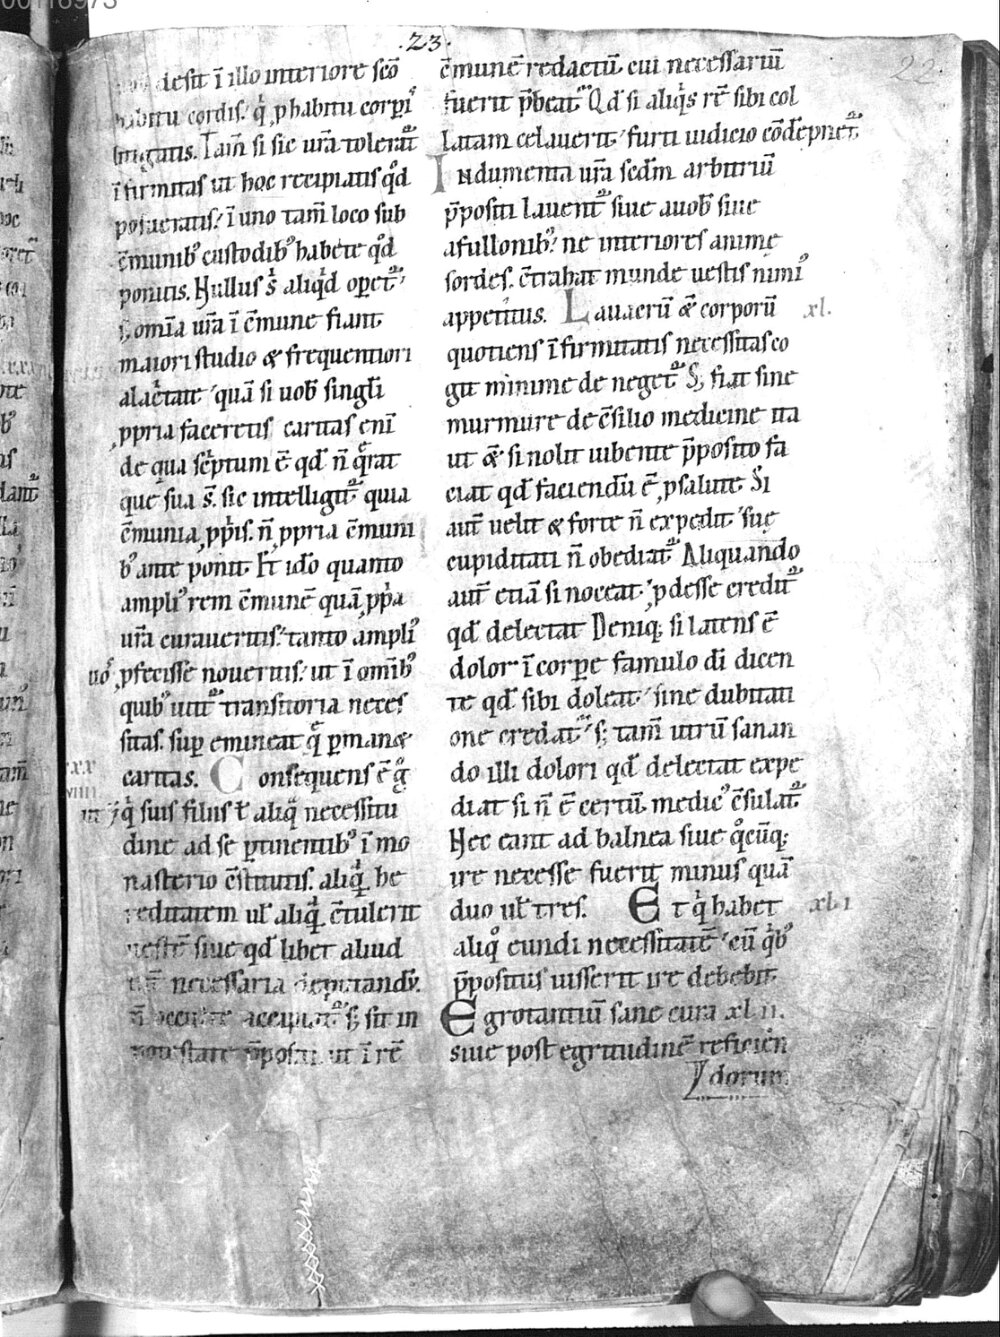 .23.
22
desit ī illo interiore scō
habitu cordis. q̇ ꝓ habitu corpı᷒
litigatis. Tam̄ si sic ur̄a tolerat᷒
īfirmitas ut hoc recipiatis qd̄
posueratis: ī uno tam̄ loco sub
c̄munib᷒ custodib᷒ habete qd̄
ponitis. Nullus s̄ aliqd̄ oꝑet᷒
s; om̄ia ur̄a ī c̄mune fiant
maiori studio & frequentiori
alac̄tate quā si uob̄ singl̄i
ꝓpria faceretis caritas enī
de qua sc̄ptum ē qd̄ n̄ q̄rat
que sua s̄. sic intelligit᷒ quia
c̄munia ꝓpis. n̄ ꝓpria c̄muni
b᷒ ante ponit. Et ido quanto
ampli᷒ rem c̄munē quā ꝓpa
ur̄a curaueritis: tanto ampli᷒
uo᷒ ꝓfecisse noueritis: ut ī om̄ib᷒
quib᷒ utit᷒ transitoria neces
sitas. suꝑ emineat q̄ ꝑman&
caritas. Consequens ē g̊
xx
viiii
ut q̇ suis filiis ł aliq̄ necessitu
dine ad se ꝑtinentib᷒ ī mo
nasterio c̄stitutis. aliq̄ he
reditatem ul̄ aliq̄ c̄tulerit
uestē siue qd̄ libet aliud
necessaria
accipiat᷒ s; sit in
p̄positi ut ī rē
c̄munē redactū cui necessariū
fuerit p̄beat᷒ Qd̄ si aliq̇s rē sibi col
latam celauerit furti iudicio cōdēpnet᷒
Indumenta ur̄a scdm̄ arbitriū
p̄positi lauent᷒ siue auob̄ siue
afullonib᷒ ne interiores anime
sordes. c̄trahat munde uestis nimi᷒
appetitus. Lauacrū & corporū xl.
quotiens īfirmitatis necessitas co
git minime de neget᷒ S; fiat sine
murmure de c̄silio medicine ita
ut & si nolit iubente p̄posito fa
ciat qd̄ faciendū ē ꝓ salute Si
aut̄ uelit & forte n̄ expedit sue
cupiditati n̄ obediat᷒ Aliquando
aut̄ etiā si noceat ꝓdesse credit᷒
qd̄ delectat Deniq; si latens ē
dolor ī corꝑe famulo di̅ dicen
te qd̄ sibi doleat sine dubitati
one credat᷒ s; tam̄ utrū sanan
do illi dolori qd̄ delectat expe
diat si n̄ ē certū medic᷒ c̄sulat᷒
Nec eant ad balnea siue q̊cūq;
ire necesse fuerit minus quā
duo ul̄ tres. Et q̇ habet xli
aliq̊ eundi necessitatē cū q̇b᷒
p̄positus iusserit ire debebit.
Egrotantiū sane cura xlii.
siue post egritudinē reficien
dorum